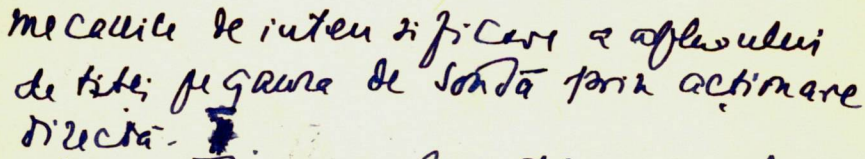 mecanice de intensificare a afluxului
de țiței pe gaura de sondă prin acționare
directă.